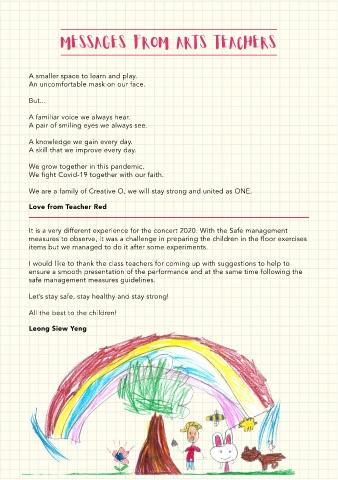 MESSAGES FROM ARTS TEACHERS
A smaller space to learn and play.
An uncomfortable mask on our face.
But...
A familiar voice we always hear.
A pair of smiling eyes we always see.
A knowledge we gain every day.
A skill that we improve every day.
We grow together in this pandemic.
We fight Covid-19 together with our faith.
We are a family of Creative O, we will stay strong and united as ONE.
Love from Teacher Red
It is a very different experience for the concert 2020. With the Safe management
measures to observe, it was a challenge in preparing the children in the floor exercises
items but we managed to do it after some experiments.
I would like to thank the class teachers for coming up with suggestions to help to
ensure a smooth presentation of the performance and at the same time following the
safe management measures guidelines.
Let's stay safe, stay healthy and stay strong!
All the best to the children!
Leong Siew Yeng